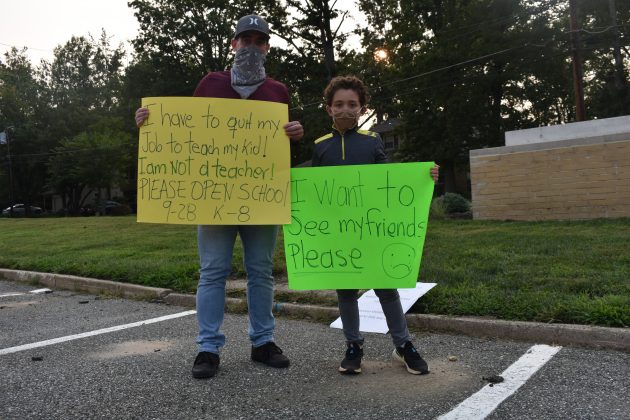 I have to quit my
Job to teach my kid!
I am Not a teacher!
PLEASE OPEN SCHOOL
9-28 K-8
I Want to
See my friends
Please